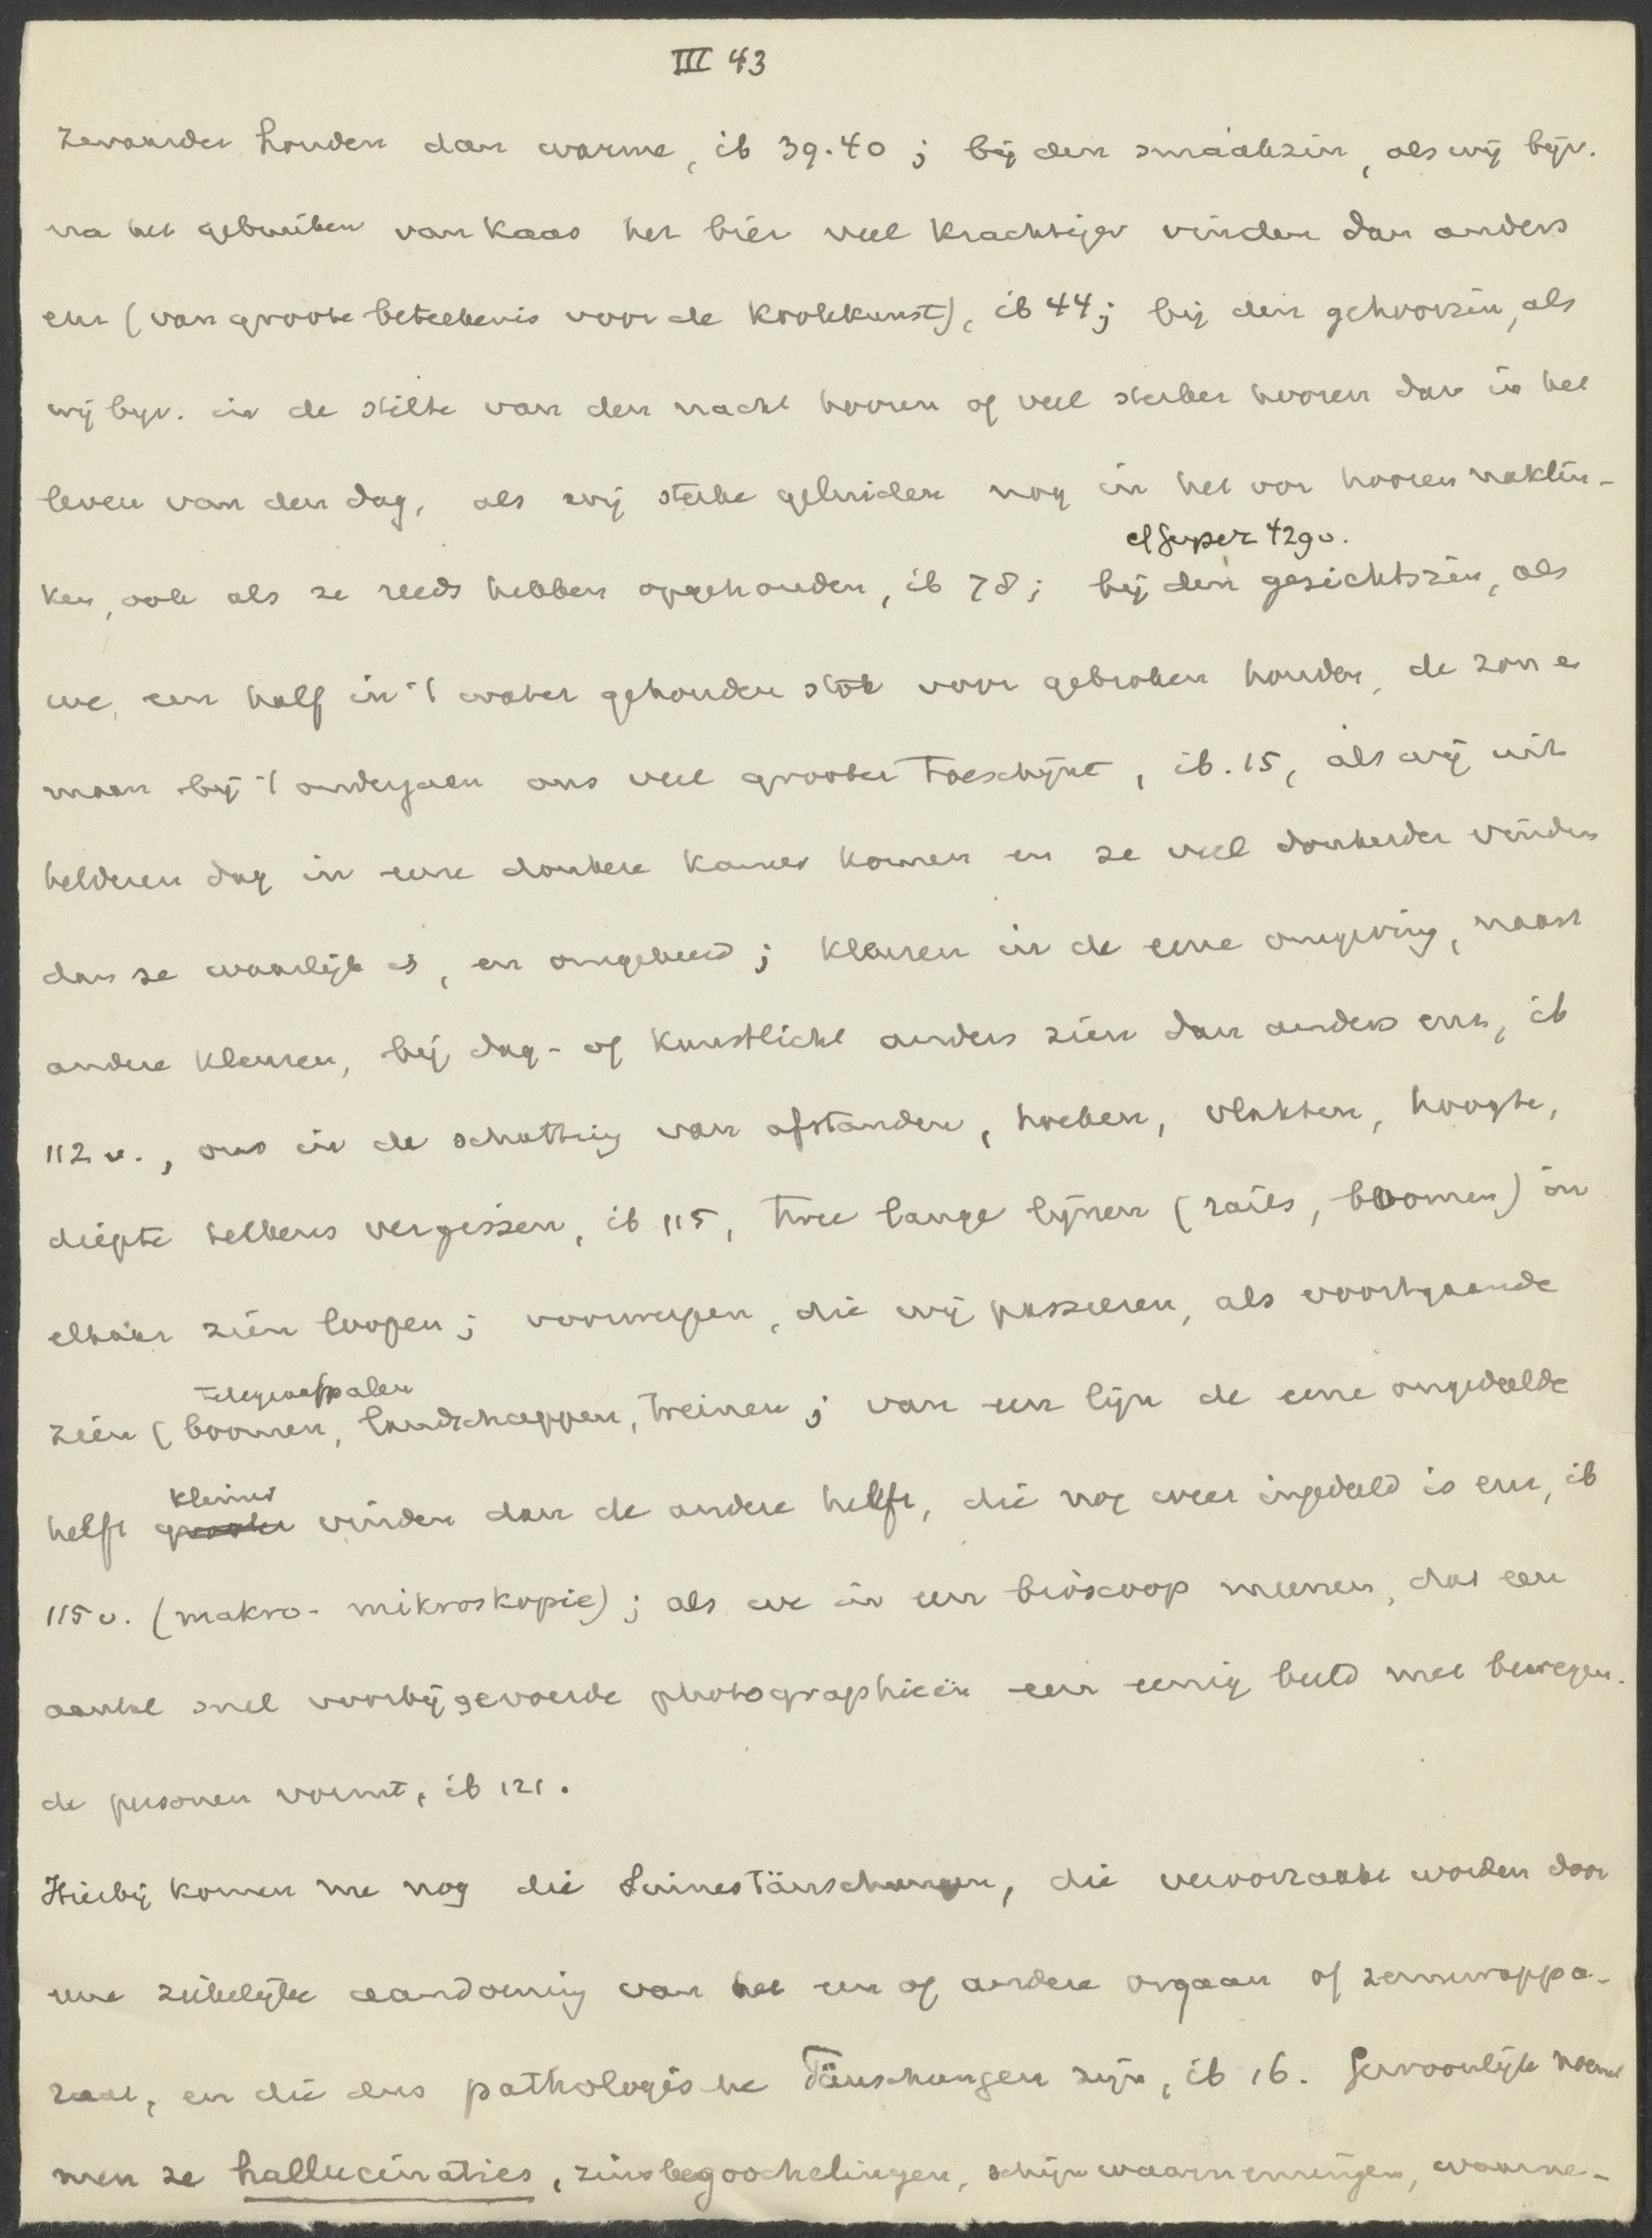 III 43
zwaarder houden dan warme, ib 39.40; bij den smaakzin, als wij bijv.
na het gebruiken van kaas het bier veel krachtiger vinden dan anders
enz (van groote beteekenis voor de kookkunst), ib 44; bij den gehoorzin, als
wij bijv. in de stilte van den nacht hooren of veel sterker hooren dan in het
leven van den dag, als wij sterke geluiden nog in het oor hooren naklin-
cf Geyser 429v.
ken, ook als ze reeds hebben opgehouden, ib 78; bij den gezichtszin, als
we een half in 't water gehouden stok voor gebroken houden, de zon e
maan bij 't ondergaan ons veel grooter toeschijnt, ib. 15, als wij uit
helderen dag in eene donkere kamer komen en ze veel donkerder vinden
dan ze waarlijk is, en omgekeerd; kleuren in de eene omgeving, naast
andere kleuren, bij dag- of kunstlicht anders zien dan anders enz, ib
112 v., ons in de schatting van afstanden, hoeken, vlakten, hoogte,
diepte telkens vergissen, ib 115, twee lange lijnen (rails, boomen) in
elkaar zien loopen; voorwerpen, die wij passeeren, als voortgaande
telegraafpalen
zien (boomen, landschappen, treinen; van een lijn de eene ongedeelde
kleiner
helft grooter vinden dan de andere helft, die nog weer ingedeeld is enz, ib
115 v. (makro- mikroskopie); als we in een bioscoop meenen, dat een
aantal snel voorbij gevoerde photographieën een eenig beeld met bewegen-
de personen vormt, ib 121.
Hierbij komen me nog die Sinnestäuschungen, die veroorzaakt worden door
eene ziekelijke aandoening van het een of andere orgaan of zenuwappa-
raat, en die dus pathologische Täuschungen zijn, ib 16. Gewoonlijk noemt
men ze hallucinaties, zinsbegoochelingen, schijnwaarnemingen, waarne-